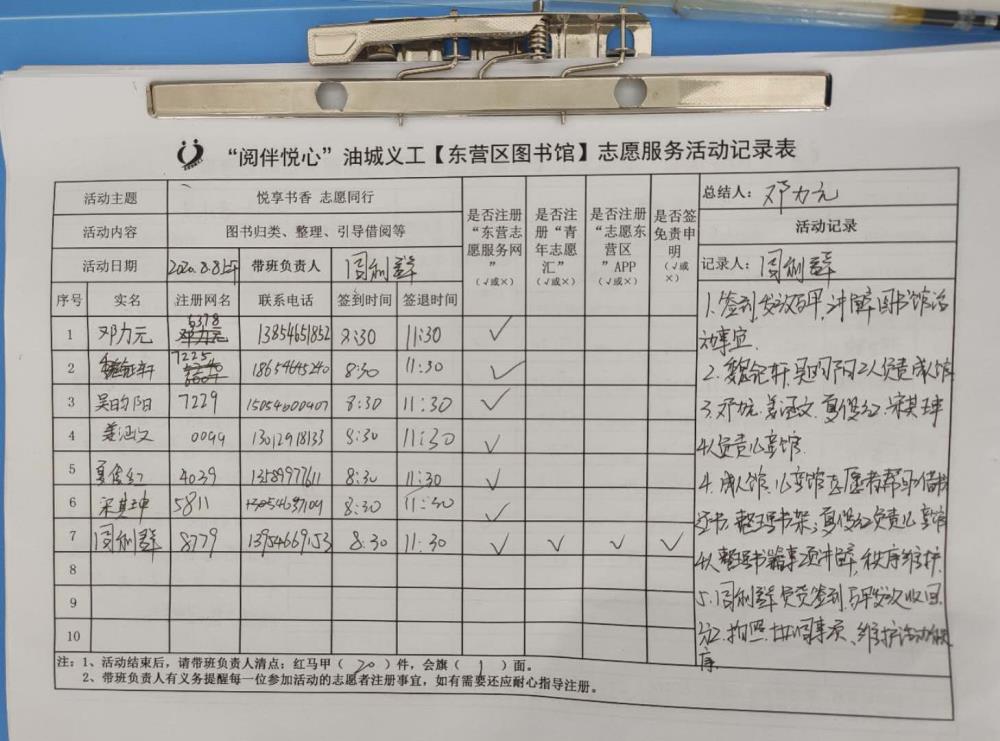 “阅伴悦心”油城义工【东营区图书馆】志愿服务活动记录表
活动主题 悦享书香 志愿同行
活动内容 图书归类、整理、引导借阅等
活动日期 2020.8.8上午 带班负责人 周利群
是否注册“东营志愿服务网”(√或×)
是否注册“青年志愿汇”(√或×)
是否注册“志愿东营区”APP(√或×)
是否签免责申明(√或×)
总结人：邓力元
活动记录
记录人：周利群
序号 实名 注册网名 联系电话 签到时间 签退时间
1 邓力元 6378 13854651852 8:30 11:30 √
2 7225 18654645240 8:30 11:30 √
3 吴昀阳 7229 15054600407 8:30 11:30 √
4 姜涵文 0099 13012918133 8:30 11:30 √
5 夏俊红 4039 13589977611 8:30 11:30 √
6 宋其坤 5811 13054687109 8:30 11:30 √
7 周利群 8779 13954669153 8:30 11:30 √ √ √ √
8
9
10
1.签到,发放马甲,讲解图书馆活
动事宜.
2.轩.吴昀阳2人负责成人馆
3.邓力元.姜涵文.夏俊红.宋其坤
4人负责儿童馆.
4.成人馆、儿童馆志愿者帮助借书
还书.整理书架;夏俊红负责儿童馆
4人整理书籍事项讲解,秩序维护.
5.周利群负责签到,马甲发放收回.
拍照.协同事项、维护活动秩
序.
注：1、活动结束后，请带班负责人清点：红马甲（ 20 ）件，会旗（ 1 ）面。
2、带班负责人有义务提醒每一位参加活动的志愿者注册事宜，如有需要还应耐心指导注册。